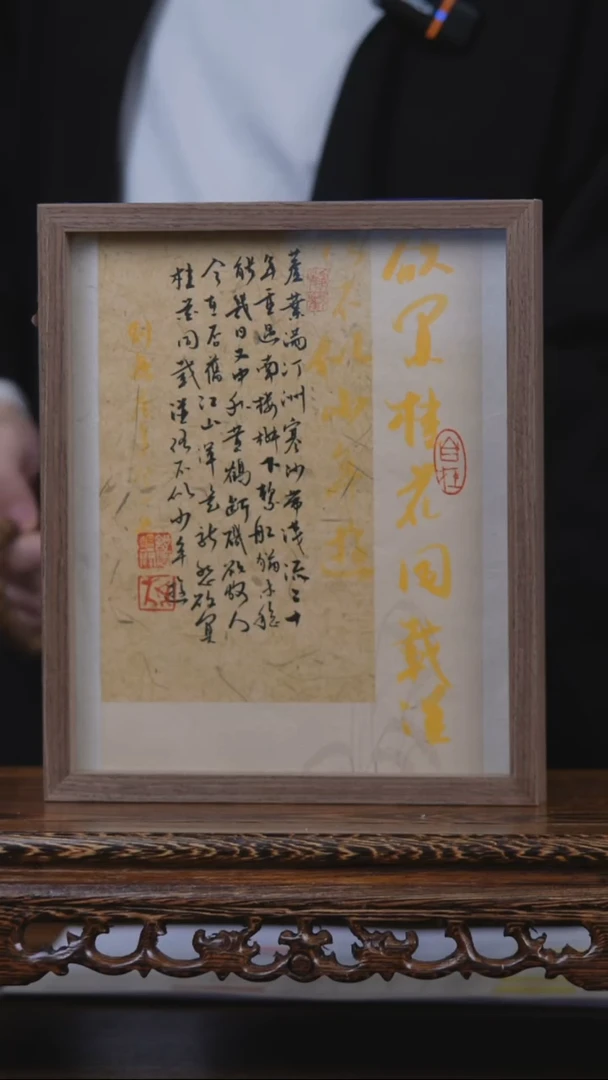 欲買桂花同載酒
終不似少年遊
蘆葉滿汀洲寒沙帶淺流二十
年重過南樓柳下繫船猶未穩
能幾日又中秋黃鶴斷磯頭故人
今在否舊江山渾是新愁欲買
桂花同載酒終不似少年遊